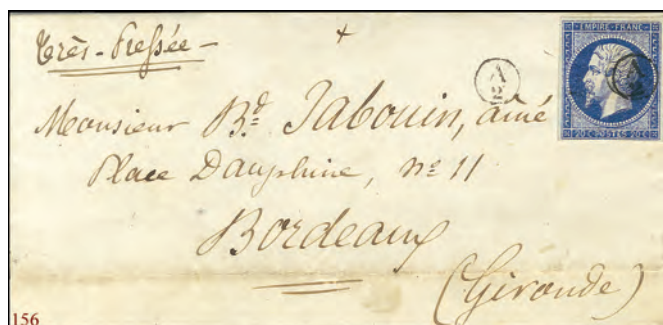 Très-Pressée -
EMPIRE FRANC
20 C POSTES 20 C
A
2
Monsieur Bd Jabouin, ainé
Place Dauphine, n° 11
Bordeaux
(Gironde)
156